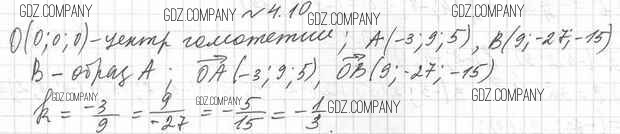 GDZ.COMPANY GDZ.COMPANY №4.10 GDZ.COMPANY GDZ.COMPANY
O(0;0;0)-центр гомотетии; A(-3;9;5), B(9;-27;-15)
GDZ.COMPANY
B - образ A; OA(-3;9;5), OB(9;-27;-15)
GDZ.COMPANY GDZ.COMPANY GDZ.COMPANY
k = -3/9 = 9/-27 = -5/15 = -1/3.
GDZ.COMPANY